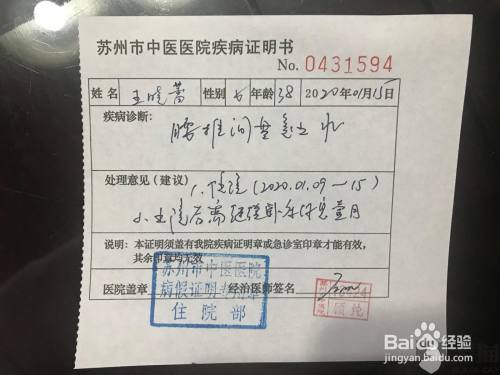 苏州市中医医院疾病证明书
No. 0431594
姓名 王晓蕾 性别 女 年龄 38 2020年01月15日
疾病诊断:
腰椎间盘突出
处理意见(建议) 1. 住院(2020.01.09~15)
2. 出院后需继续卧床休息壹月
说明:本证明须盖有我院疾病证明章或急诊室印章才能有效,
其余印章均无效
医院盖章 经治医师签名
苏州市中医医院
病假证明专用章
住院部
Baidu经验
jingyan.baidu.com